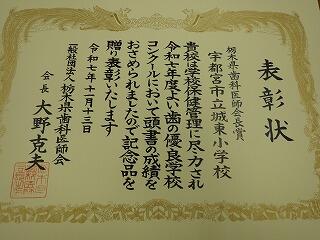 表彰状
栃木県歯科医師会長賞
宇都宮市立城東小学校
貴校は学校保健管理に尽力され
令和七年度よい歯の優良学校
コンクールにおいて頭書の成績を
おさめられましたので記念品を
贈り表彰いたします
令和七年十一月十三日
一般社団法人 栃木県歯科医師会
会長 大野克夫